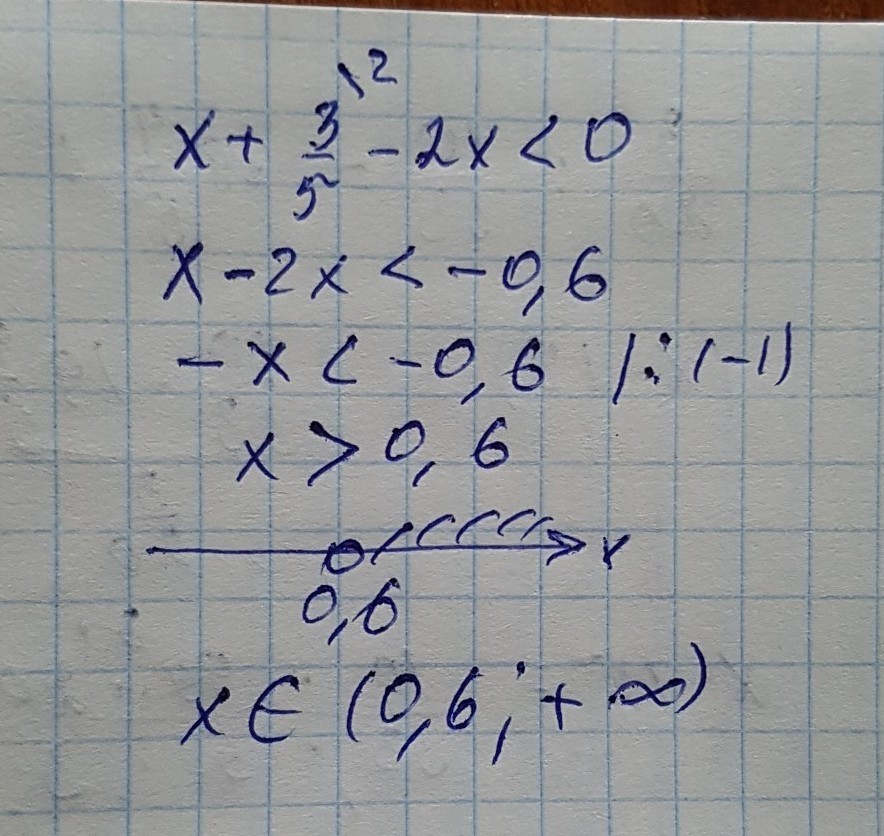 x + 3/5 \2 - 2x < 0
x - 2x < -0,6
-x < -0,6 |:(-1)
x > 0,6
x
0,6
x ∈ (0,6; +∞)